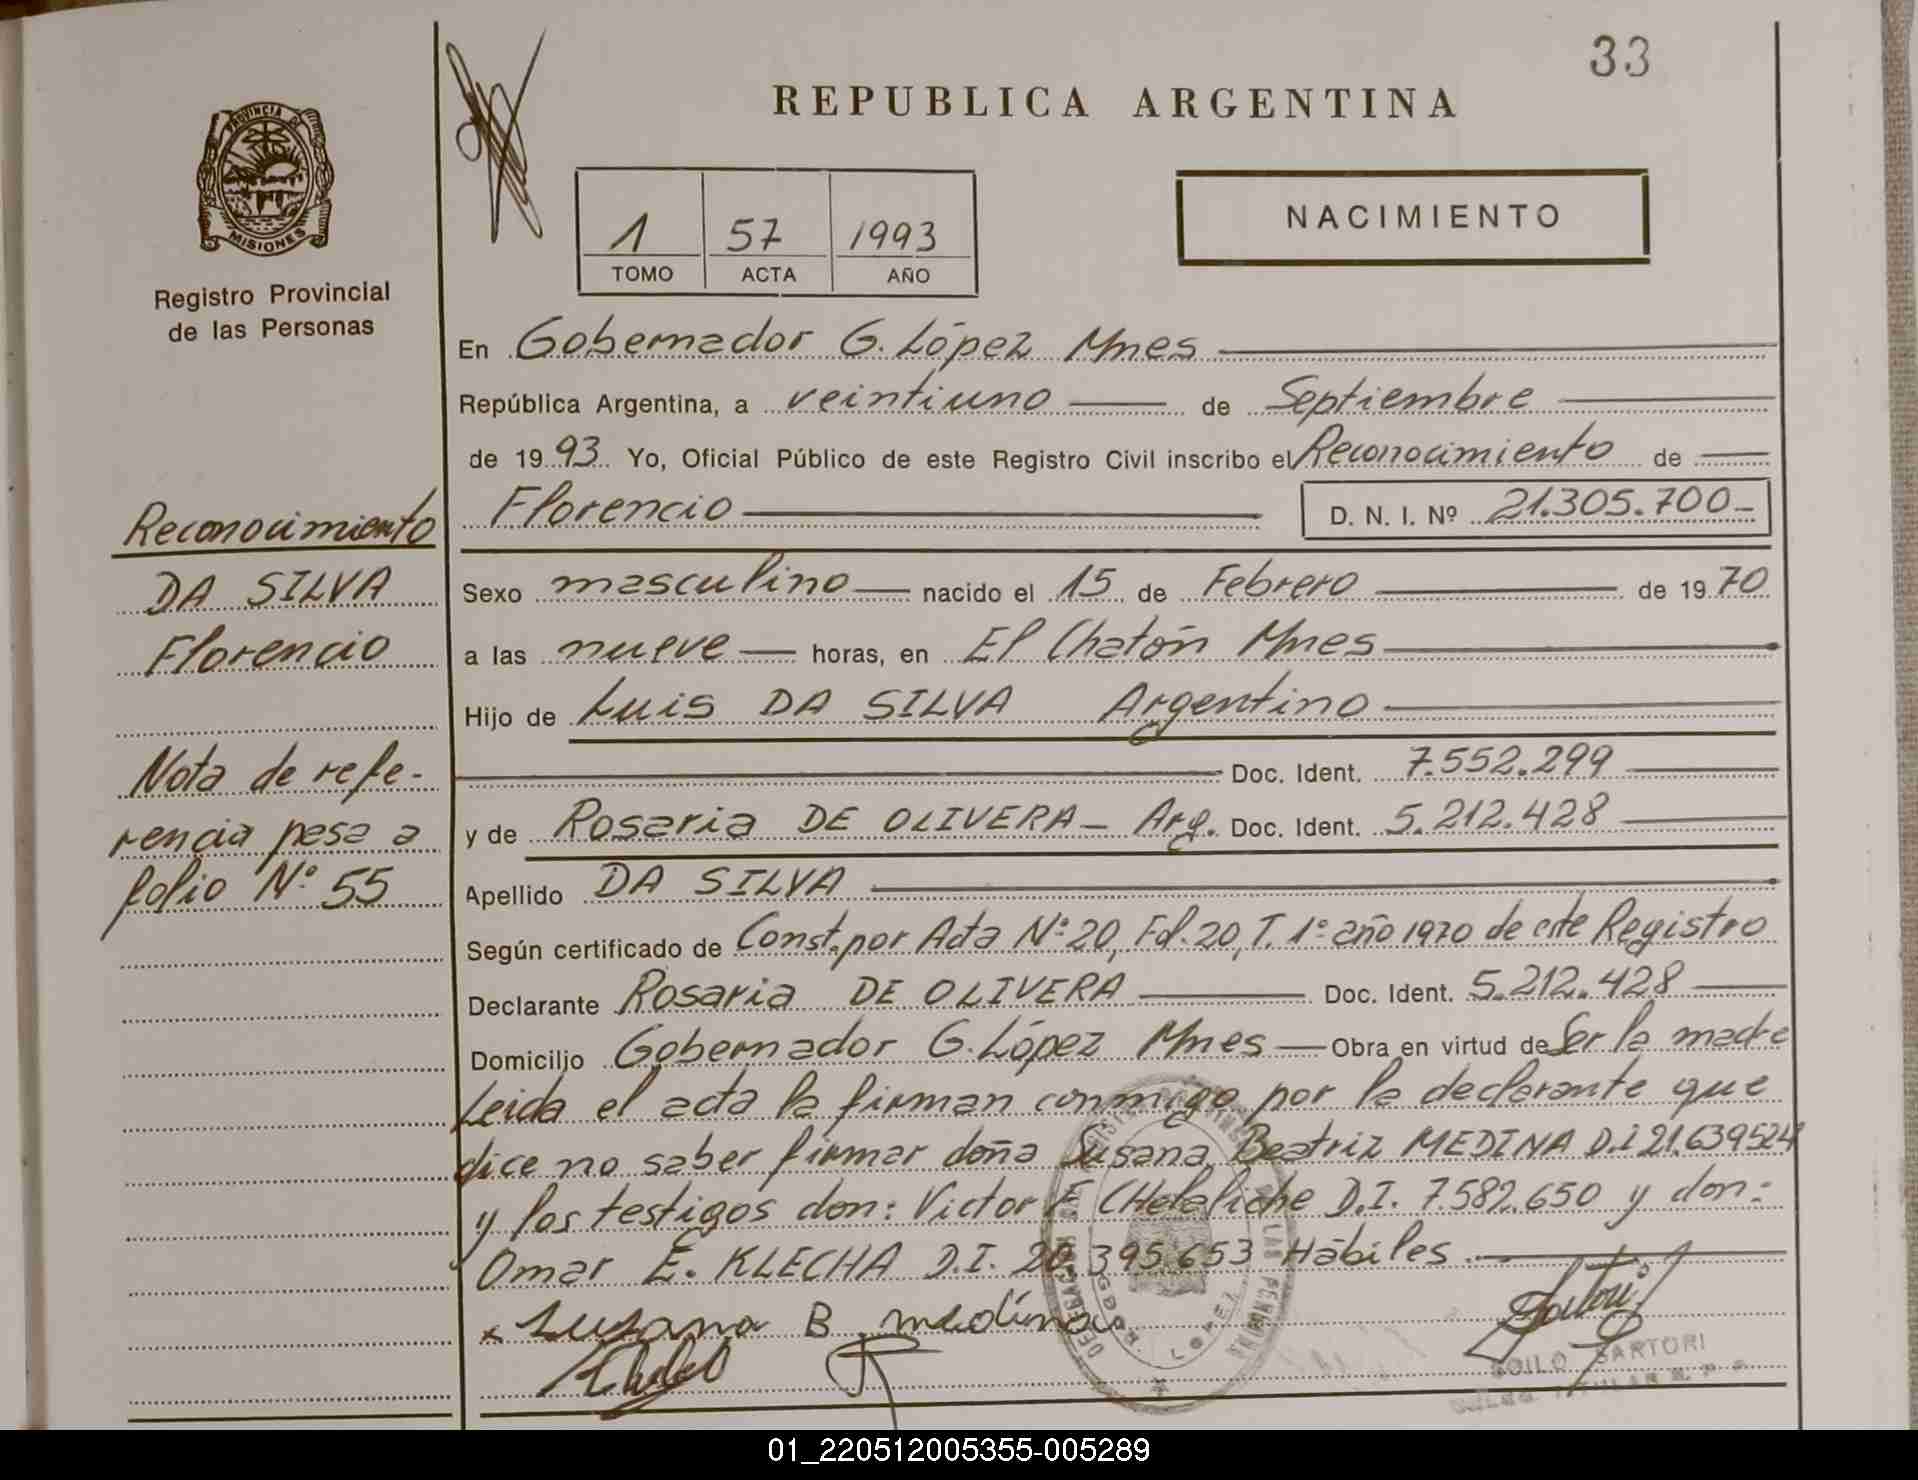 33
REPUBLICA ARGENTINA
PROVINCIA DE
MISIONES
Registro Provincial
de las Personas
1 57 1993
TOMO ACTA AÑO
NACIMIENTO
En Gobernador G. López Mnes
República Argentina, a veintiuno de Septiembre
de 1993. Yo, Oficial Público de este Registro Civil inscribo el Reconocimiento de
Florencio D. N. I. Nº 21.305.700-
Reconocimiento
DA SILVA
Florencio
Nota de refe-
rencia pasa a
folio Nº 55
Sexo masculino nacido el 15 de Febrero de 1970
a las nueve horas, en El Chatón Mnes
Hijo de Luis DA SILVA Argentino
Doc. Ident. 7.552.299
y de Rosaria DE OLIVERA - Arg. Doc. Ident. 5.212.428
Apellido DA SILVA
Según certificado de Const. por Acta Nº 20, Fol. 20, T. 1º año 1970 de este Registro
Declarante Rosaria DE OLIVERA Doc. Ident. 5.212.428
Domicilio Gobernador G. López Mnes Obra en virtud de Ser la madre
Leida el acta la firman conmigo por la declarante que
dice no saber firmar doña Susana Beatriz MEDINA D.I 21.639524
y los testigos don: Victor F. CHelaliche D.I. 7.582.650 y don:
Omar E. KLECHA D.I. 20.395.653 Hábiles.
Susana B. medina
SOILO SARTORI
01_220512005355-005289